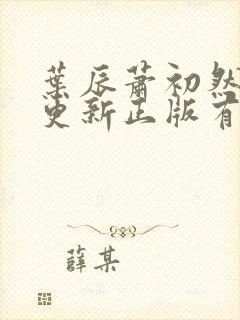 葉辰蕭初然
更新正版有
薛某